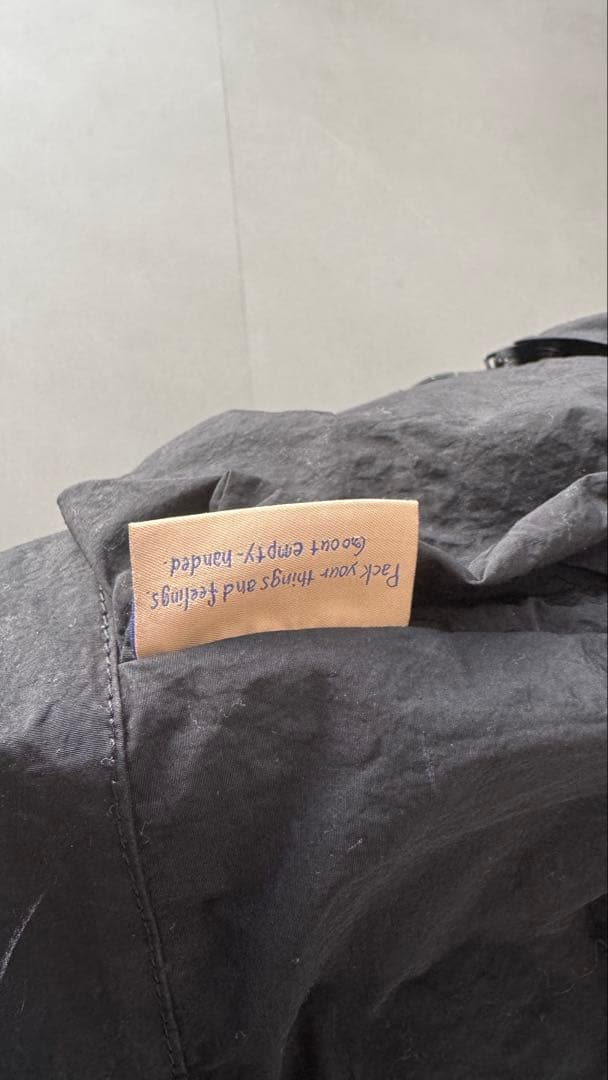 Pack your things and feelings.
Go out empty-handed.